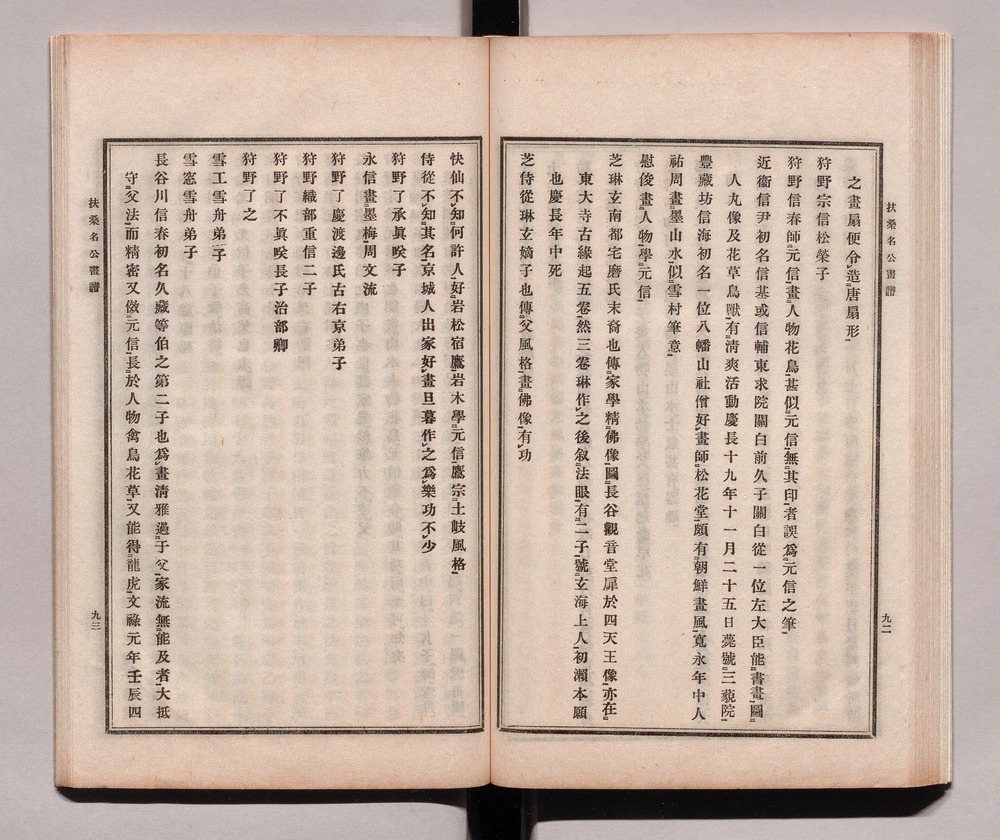 扶桑名公畫譜
九二
之畫扇便令造唐扇形
狩野宗信松榮子
狩野信春師元信畫人物花鳥甚似元信無其印者誤爲元信之筆
近衞信尹初名信基或信輔東求院關白前久子關白從一位左大臣能書畫圖
人丸像及花草鳥獸有淸爽活動慶長十九年十一月二十五日薨號三藐院
豐藏坊信海初名一位八幡山社僧好畫師松花堂頗有朝鮮畫風寬永年中人
祐周畫墨山水似雪村筆意
慰俊畫人物學元信
芝琳玄南都宅磨氏末裔也傳家學精佛像圖長谷觀音堂扉於四天王像亦在
東大寺古緣起五卷然三卷琳作之後叙法眼有二子號玄海上人初瀨本願
也慶長年中死
芝侍從琳玄嫡子也傳父風格畫佛像有功
快仙不知何許人好岩松宿鷹岩木學元信鷹宗土岐風格
侍從不知其名京城人出家好畫旦暮作之爲樂功不少
狩野了承眞咲子
永信畫墨梅周文流
狩野了慶渡邊氏古右京弟子
狩野織部重信二子
狩野了不眞咲長子治部卿
狩野了之
雪工雪舟弟子
雪窓雪舟弟子
長谷川信春初名久藏等伯之第二子也爲畫淸雅過于父家流無能及者大抵
守父法而精密又倣元信長於人物禽鳥花草又能得龍虎文祿元年壬辰四
扶桑名公畫譜
九三